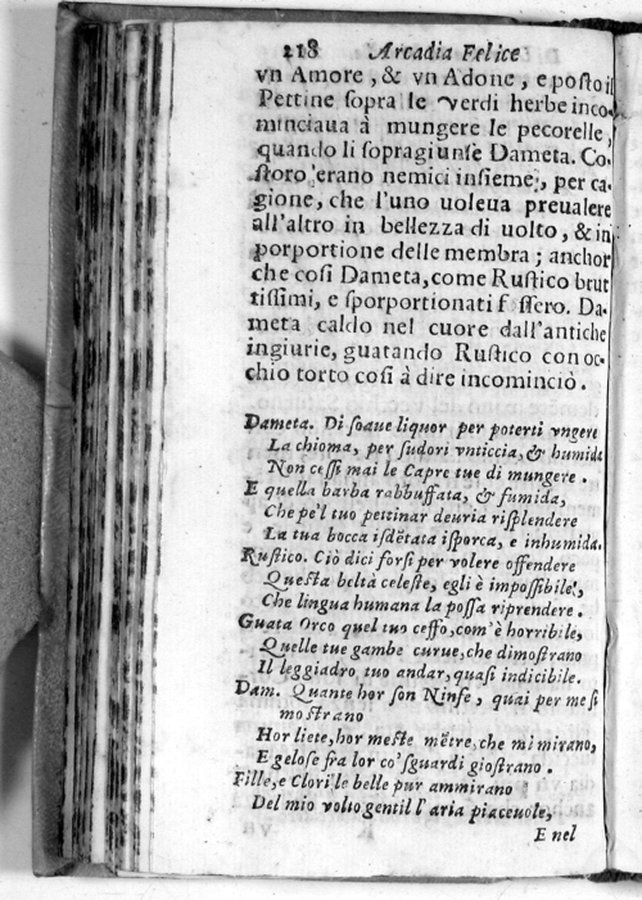 218 Arcadia Felice
vn Amore, & vn Adone, e posto il
Pettine sopra le verdi herbe inco-
minciaua à mungere le pecorelle,
quando li sopragiunse Dameta. Co-
storo erano nemici insieme, per ca-
gione, che l'uno uoleua preualere
all'altro in bellezza di uolto, & in
porportione delle membra; anchor
che cosi Dameta, come Rustico brut
tissimi, e sporportionati f ssero. Da-
meta caldo nel cuore dall'antiche
ingiurie, guatando Rustico con oc-
chio torto cosi à dire incominciò.
Dameta. Di soaue liquor per poterti vngere
La chioma, per sudori vnticcia, & humida
Non cessi mai le Capre tue di mungere.
E quella barba rabbuffata, & fumida,
Che pe'l tuo pettinar deuria risplendere
La tua bocca isdẽtata isporca, e inhumida.
Rustico. Ciò dici forsi per volere offendere
Questa beltà celeste, egli è impossibile,
Che lingua humana la possa riprendere.
Guata Orco quel tuo ceffo, com'è horribile,
Quelle tue gambe curue, che dimostrano
Il leggiadro tuo andar, quasi indicibile.
Dam. Quante hor son Ninfe, quai per me si
mostrano
Hor liete, hor meste mẽtre, che mi mirano,
E gelose fra lor co' sguardi giostrano.
Fille, e Clori le belle pur ammirano
Del mio volto gentil l'aria piaceuole,
E nel